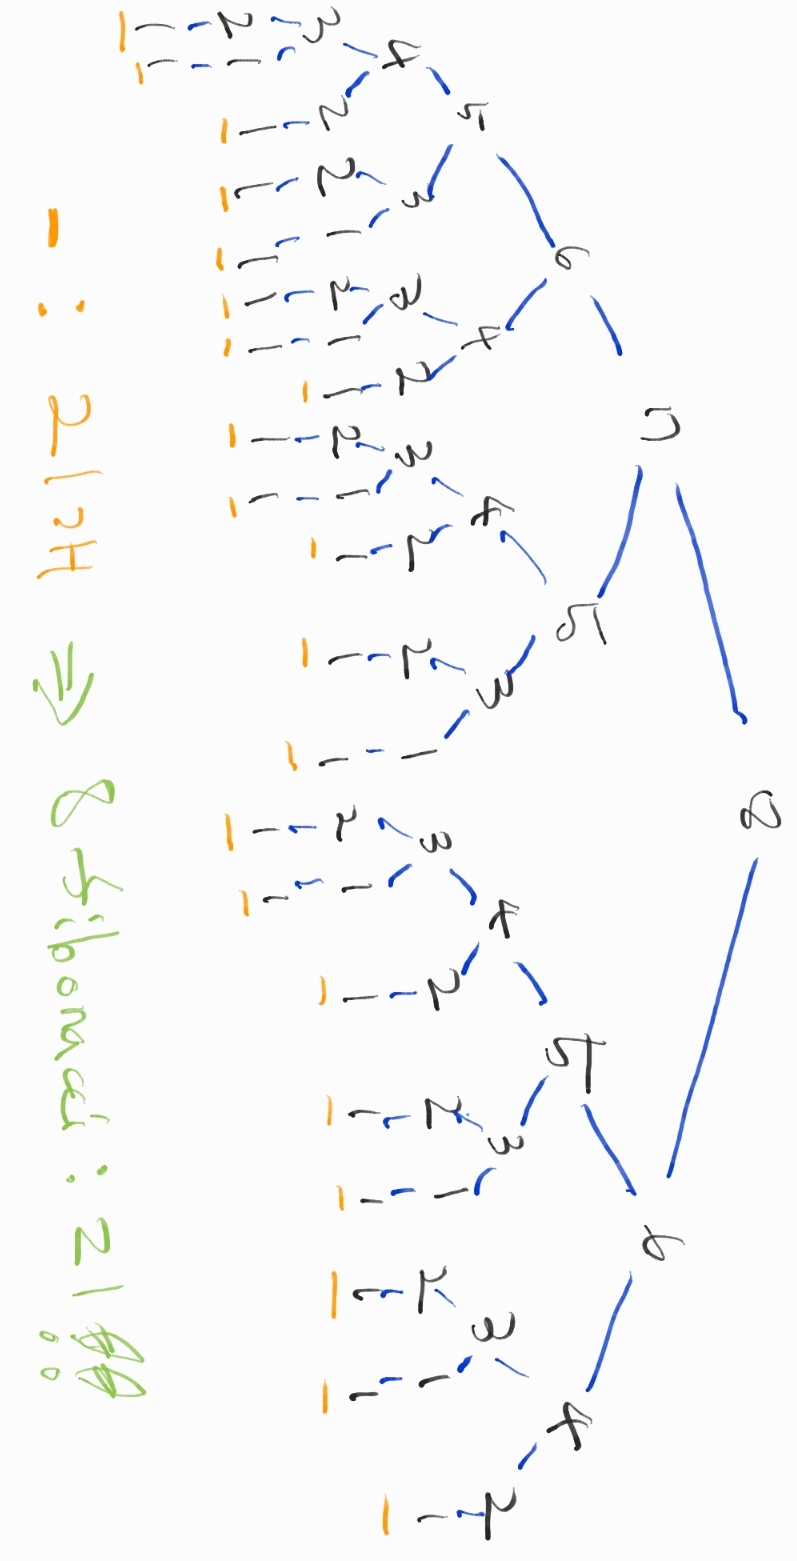 8
7 6
6 5 5 4
5 4 4 3 4 3 3 2
4 3 3 2 3 2 2 1 3 2 2 1 2 1 1
3 2 2 1 2 1 1 2 1 1 1 1 2 1 1 1 1 1 1
2 1 1 1 1 1 1 1 1 1 1
1 1
- : 21개 ⇒ 8 fibonacci : 21!!